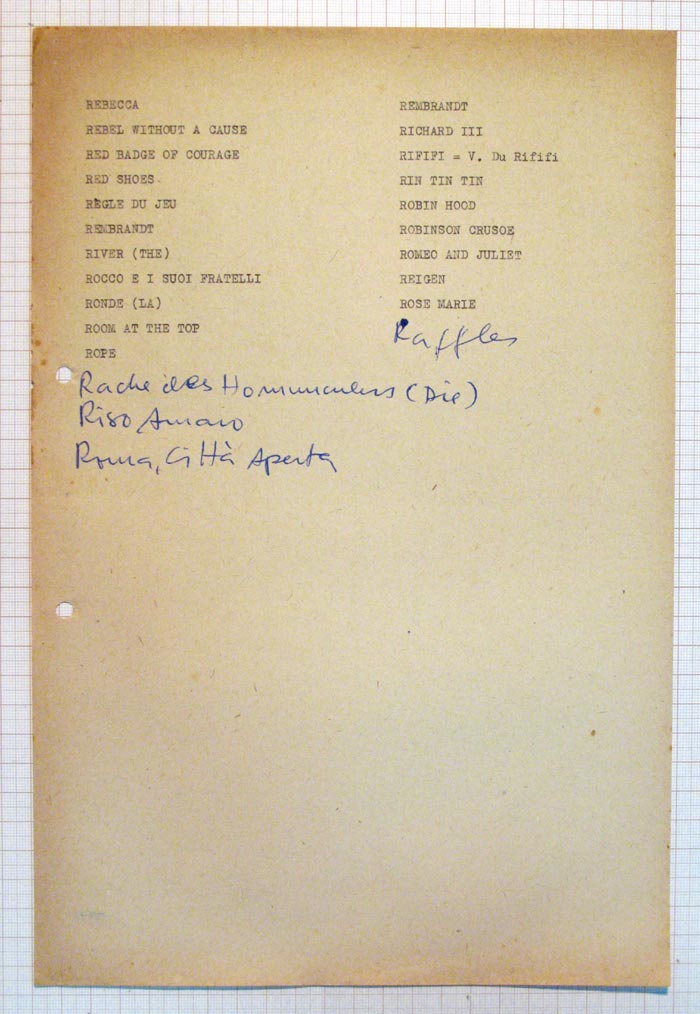 REBECCA
REBEL WITHOUT A CAUSE
RED BADGE OF COURAGE
RED SHOES.
REGLE DU JEU
REMBRANDT
RIVER (THE)
ROCCO E I SUOI FRATELLI
RONDE (LA)
ROOM AT THE TOP
ROPE
Rache des Homunculus (Die)
Riso Amaro
Roma, Città Aperta
REMBRANDT
RICHARD III
RIFIFI = V. Du Rififi
RIN TIN TIN
ROBIN HOOD
ROBINSON CRUSOE
ROMEO AND JULIET
REIGEN
ROSE MARIE
Raffles